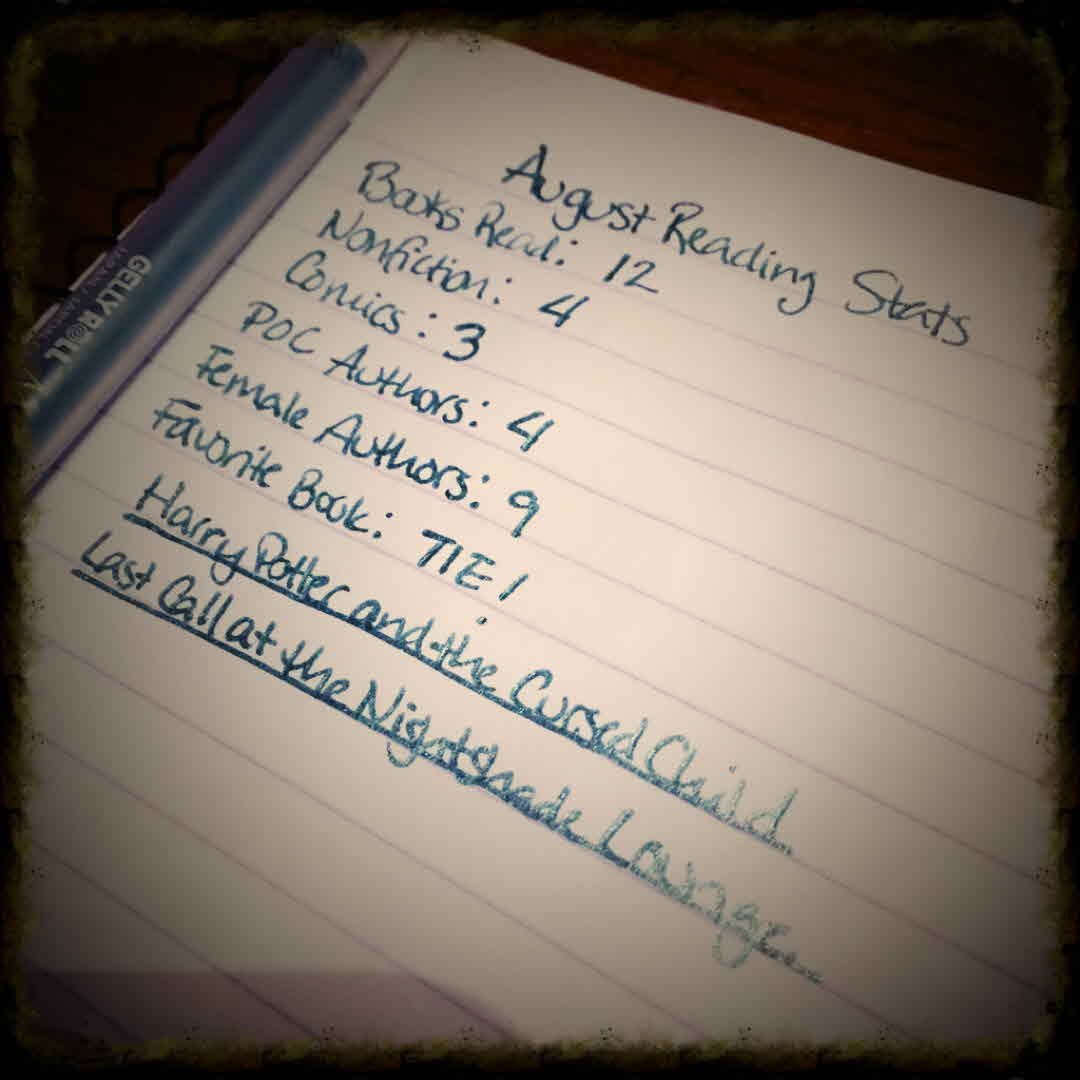 August Reading Stats
Books Read: 12
Nonfiction: 4
Comics: 3
POC Authors: 4
Female Authors: 9
Favorite Book: TIE!
Harry Potter and the Cursed Child
Last Call at the Nightshade Lounge
GELLY ROLL